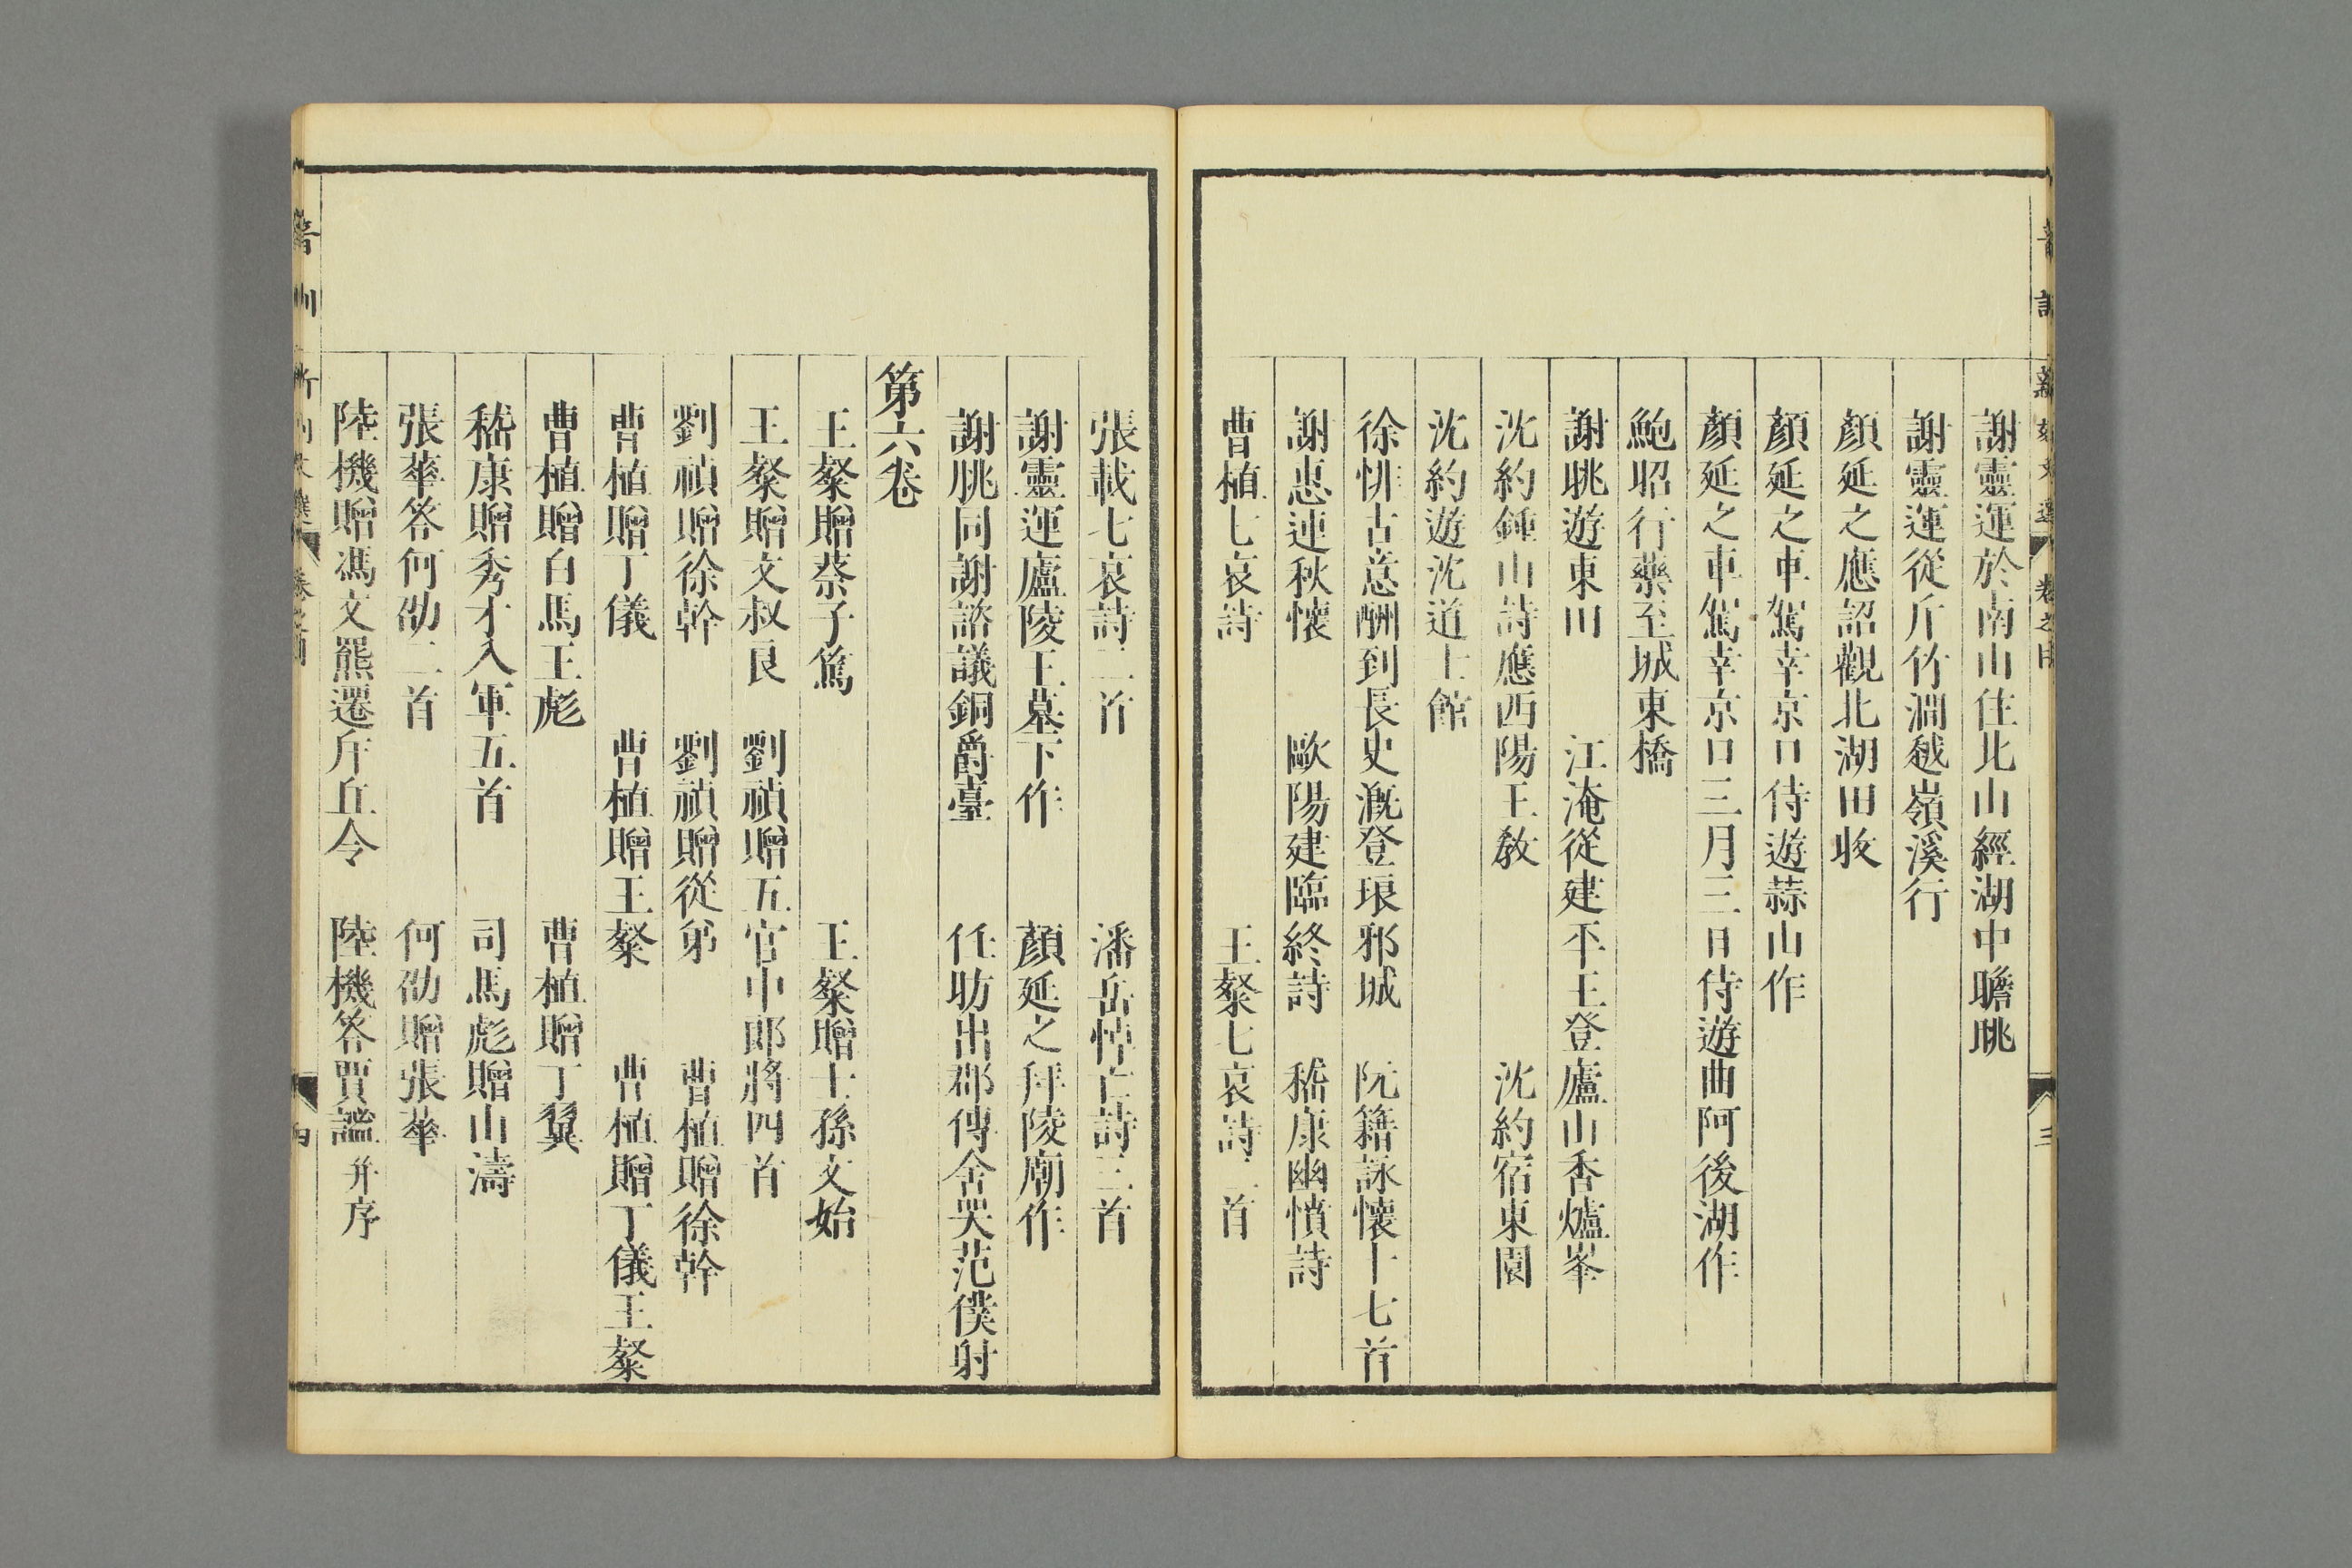 謝靈運於南山徃北山經湖中瞻眺
謝靈運從斤竹澗越嶺溪行
顏延之應詔觀北湖田收
顏延之車駕幸京口侍遊蒜山作
顏延之車駕幸京口三月三日侍遊曲阿後湖作
鮑昭行藥至城東橋
謝眺遊東田　江淹從建平王登廬山香爐峯
沈約鍾山詩應西陽王教　沈約宿東園
沈約遊沈道士館
徐悱古意酬到長史漑登琅邪城　阮籍詠懷十七首
謝惠連秋懷　歐陽建臨終詩　嵇康幽憤詩
曹植七哀詩　王粲七哀詩二首
張載七哀詩二首　潘岳悼亡詩三首
謝靈運廬陵王墓下作　顏延之拜陵廟作
謝朓同謝諮議銅爵臺　任昉出郡傳舍哭范僕射
第六卷
王粲贈蔡子篤　王粲贈士孫文始
王粲贈文叔良　劉禎贈五官中郎將四首
劉禎贈徐幹　劉禎贈從弟　曹植贈徐幹
曹植贈丁儀　曹植贈王粲　曹植贈丁儀王粲
曹植贈白馬王彪　曹植贈丁翼
嵇康贈秀才入軍五首　司馬彪贈山濤
張華答何劭二首　何劭贈張華
陸機贈馮文羆遷斥丘令　陸機答賈謐并序